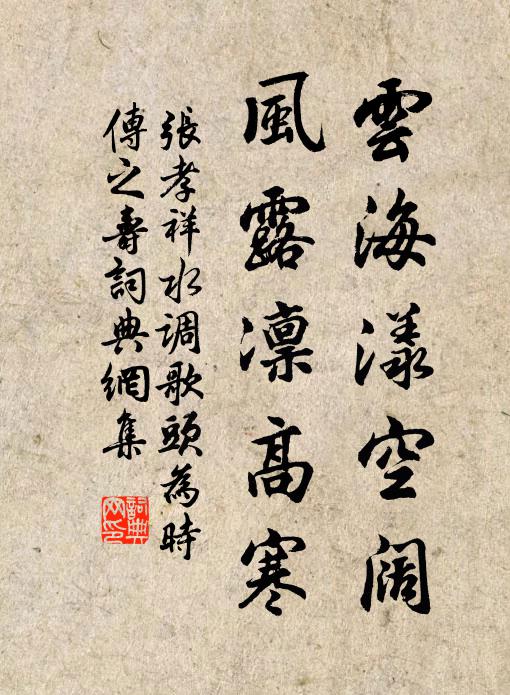 雲海漾空闊
風露凛高寒
張孝祥水调歌頭為時
傅之壽詞典網集
詞典
网印